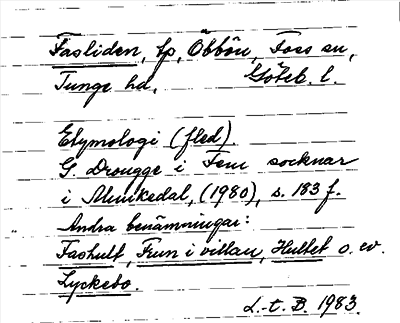 Fasliden, tp, Öbbön, Foss sn,
Tunge hd, Göteb. l.
Etymologi (fled).
G. Drougge i Fem socknar
i Munkedal, (1980), s. 183 f.
Andra benämningar:
Fashult, Frun i villan, Hultet o. ev.
Lyckebo.
L.-t. B. 1983.